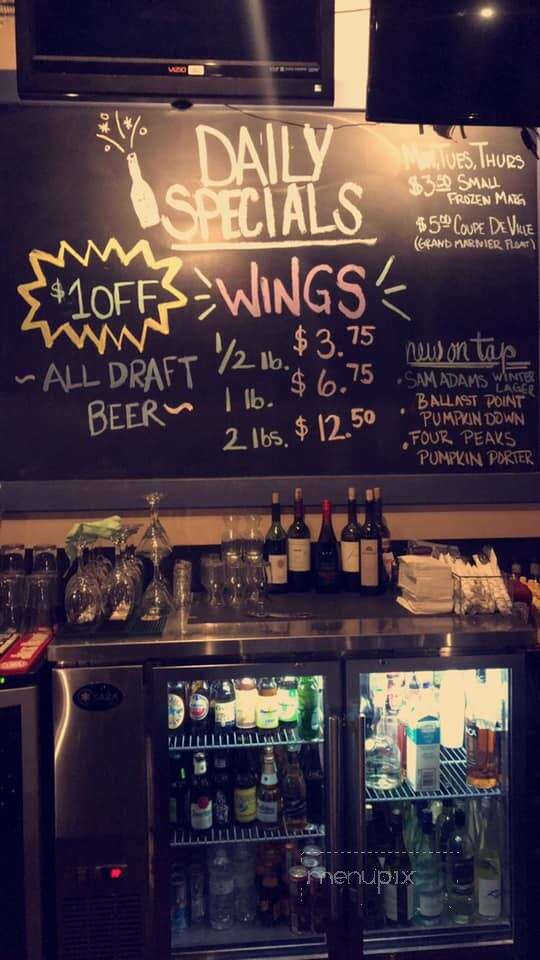 VIZIO
DAILY
SPECIALS
$1 OFF
~ALL DRAFT
BEER~
WINGS
1/2 lb. $3.75
1 lb. $6.75
2 lbs. $12.50
Mon, Tues, Thurs
$3.50 Small
Frozen Marg
$5.00 Coupe DeVille
(Grand Marnier Float)
new on tap
• Sam Adams Winter
Lager
• Ballast Point
Pumpkin Down
• Four Peaks
Pumpkin Porter
menupix